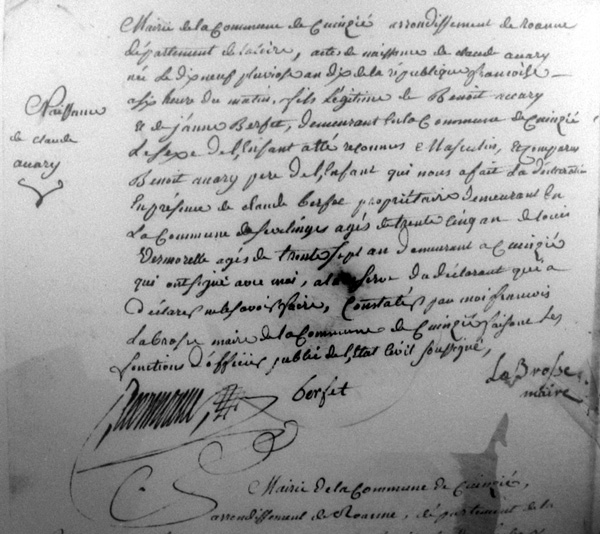 Mairie de la Commune de Cuinzié arrondissement de roanne
département de la loire, acte de naissance de claude auary
née le dixneuf pluviose an dix de la république francoise
Naissance
de claude
auary
a six heure du matin, fils légitime de Benoît auary
& de jânne Berfet, demeurant en la Commune de Cuinzié
Le sexe de L'Enfant a été reconnus Masculin,
Benoît auary pere de L'Enfant qui nous a fait La déclaration
En présence de claude berfet propriétaire demeurant en
La Commune de sevelinges agés de trente cinq an & de louis
Vermorelle agés de trente sept an demeurant a Cuinzié
qui ont signé avec moi, a la réserve du déclarant qui a
déclaré ne le savoir faire, Constatés par moi francois
Labrosse maire de la Commune de Cuinzié faisant les
fonctions d'officier public de L'Etat Civil soussigné,
La Brosse
maire
berfet
Mairie de la Commune de Cuinzié,
arrondissement de Roanne, département de la